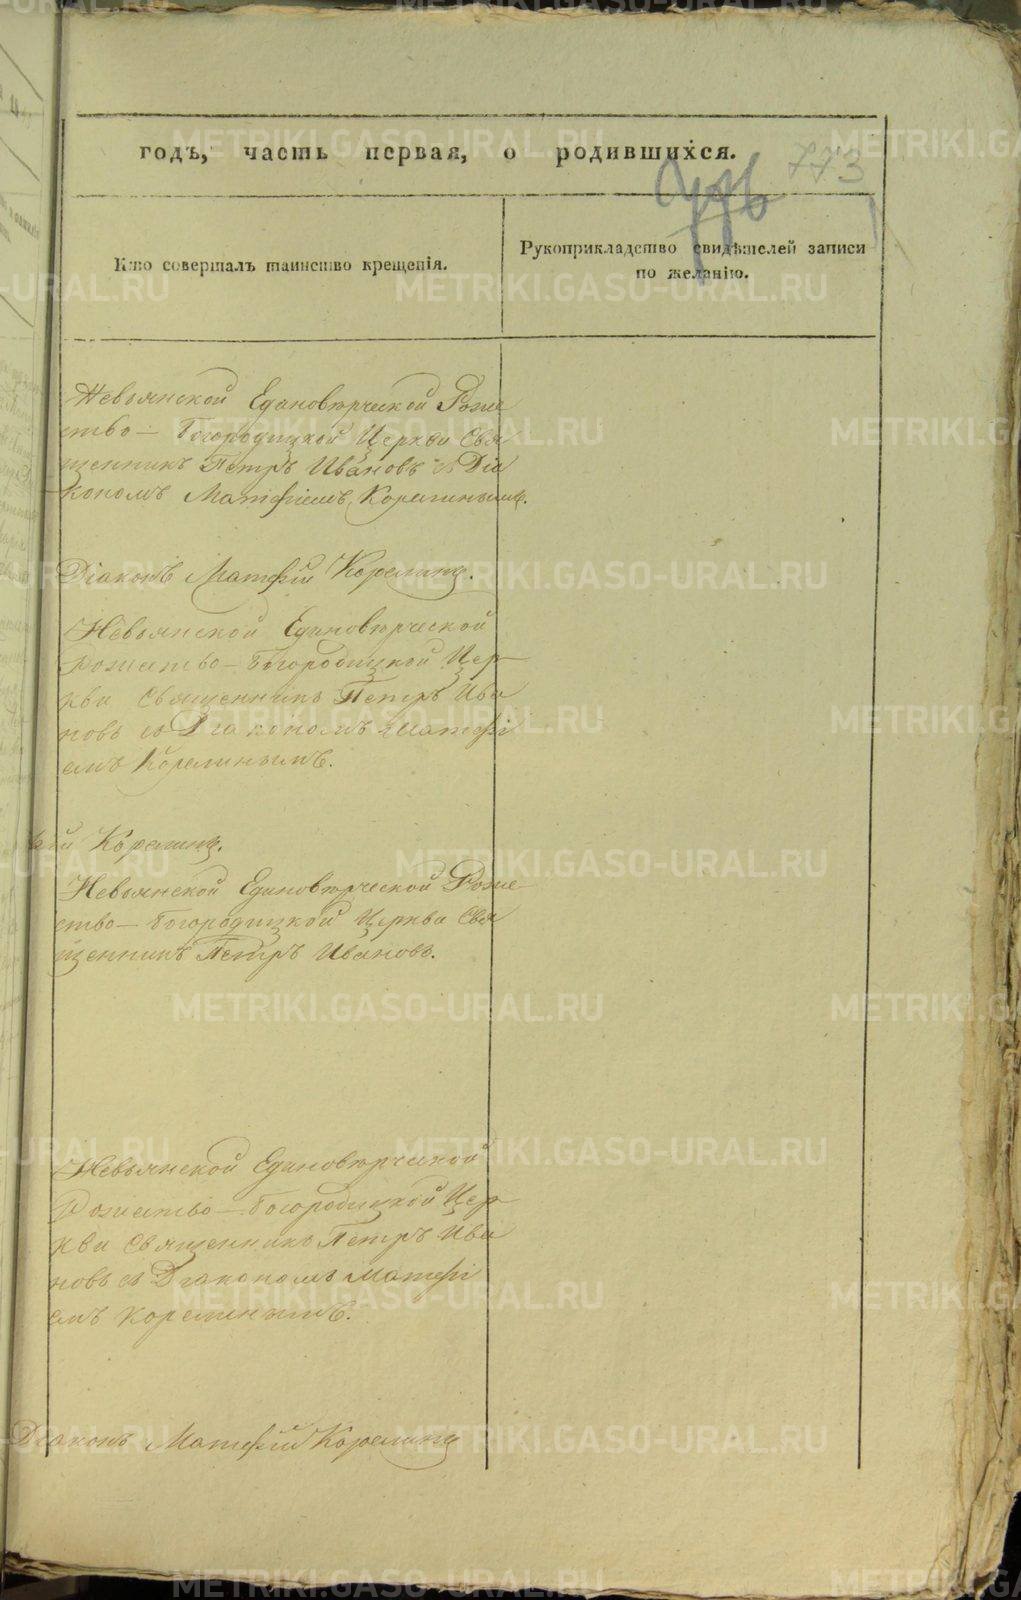 годъ, часть первая, о родившихся.
773
Кто совершалъ таинство крещенія.
Рукоприкладство свидѣтелей записи
по желанію.
Невьянской Единовѣрческой Роже
ство-Богородицкой Церкви Свя
щенникъ Петръ Ивановъ съ Діа
кономъ Матфіемъ Корелинымъ.
Діаконъ Матфій Корелинъ.
Невьянской Единовѣрческой
Рожество-Богородицкой Цер
кви Священникъ Петръ Ива
новъ съ Діакономъ Матфі
емъ Корелинымъ.
фій Корелинъ.
Невьянской Единовѣрческой Роже
ство-Богородицкой Церкви Свя
щенникъ Петръ Ивановъ.
Невьянской Единовѣрческой
Рожество-Богородицкой Цер
кви Священникъ Петръ Ива
новъ съ Діакономъ Матфі
емъ Корелинымъ.
Діаконъ Матфій Корелинъ
METRIKI.GASO-URAL.RU